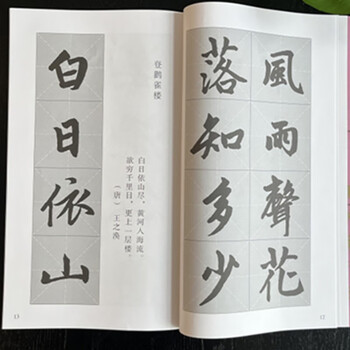 風雨聲花
落知多少
12
登鹳雀楼
白日依山尽，黄河入海流。
欲穷千里目，更上一层楼。
（唐）王之涣
白日依山
13